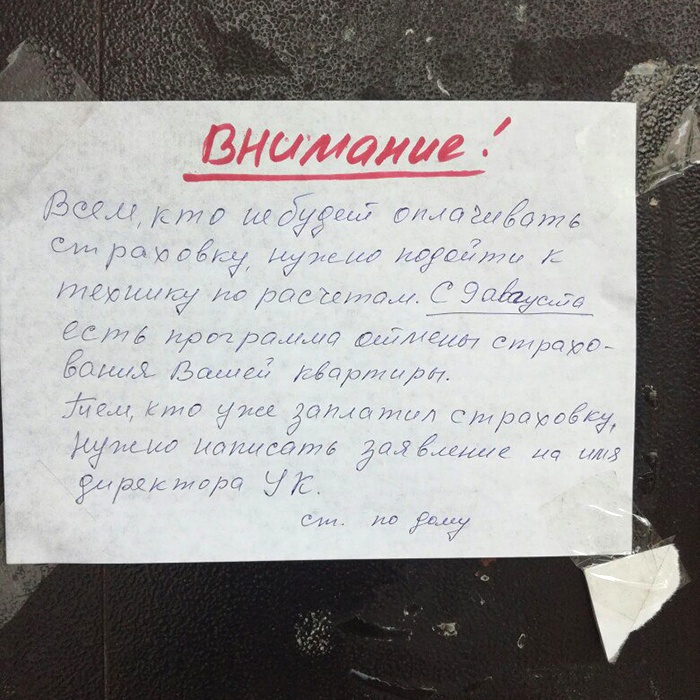 Внимание!
Всем, кто не будет оплачивать
страховку, нужно подойти к
технику по расчетам. С 9 августа
есть программа отмены страхо-
вания Вашей квартиры.
Тем, кто уже заплатил страховку,
нужно написать заявление на имя
директора УК.
ст. по дому